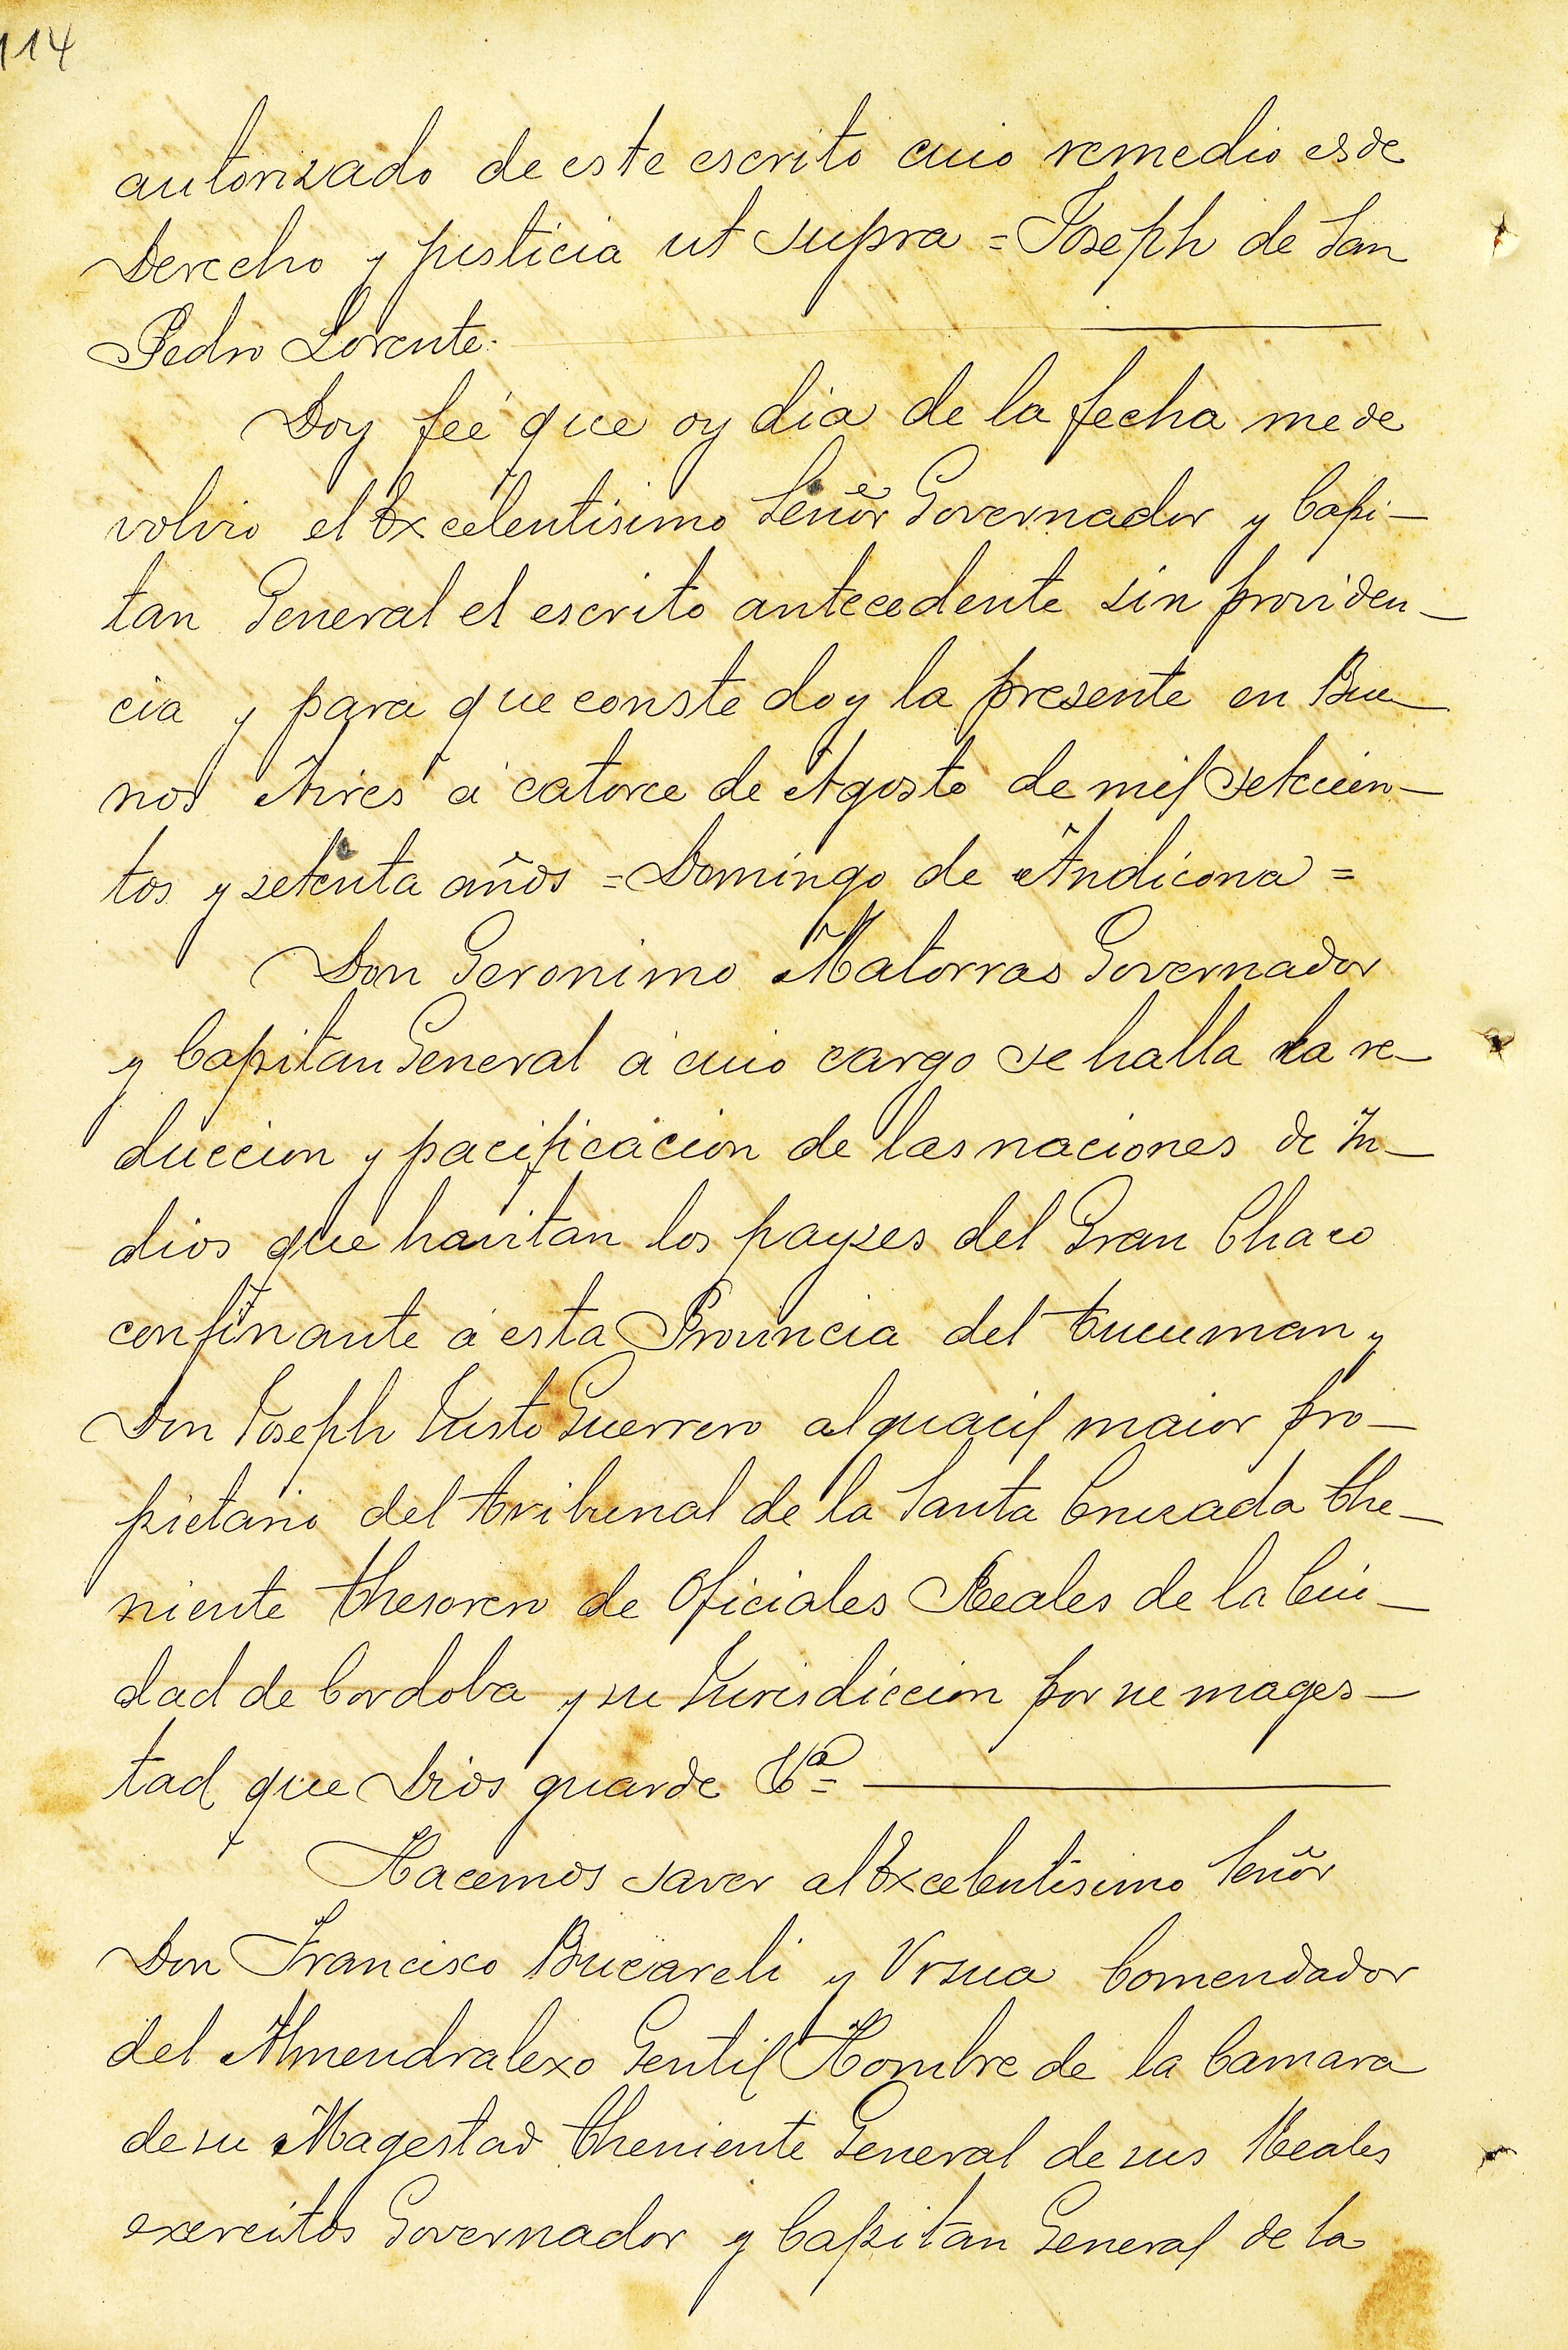 114
autorizado de este escrito cuio remedio es de
Derecho y justicia ut supra = Joseph de San
Pedro Lorente.
Doy feé que oy dia de la fecha me de
volvio el Excelentisimo Señor Governador y Capi-
tan General el escrito antecedente sin providen-
cia y para que conste doy la presente en Bue
nos Aires á catorce de Agosto de mil setecien-
tos y setenta años = Domingo de Andicona =
Don Geronimo Matorras Governador
y Capitan General á cuio cargo se halla la re-
duccion y pacificacion de las naciones de In-
dios que havitan los payzes del Gran Chaco
confinante á esta Provincia del tucuman y
Don Joseph Justo Guerrero alguacil maior pro-
pietario del tribunal de la Santa Cruzada the-
niente thesorero de Oficiales Reales de la Ciu-
dad de Cordoba y su Jurisdiccion por su mages-
tad que Dios guarde Vª =
Hacemos saver al Excelentisimo Señor
Don Francisco Bucareli y Vrsua Comendador
del Almendralexo Gentil Hombre de la Camara
de su Magestad theniente General de sus Reales
exercitos Governador y Capitan General de la